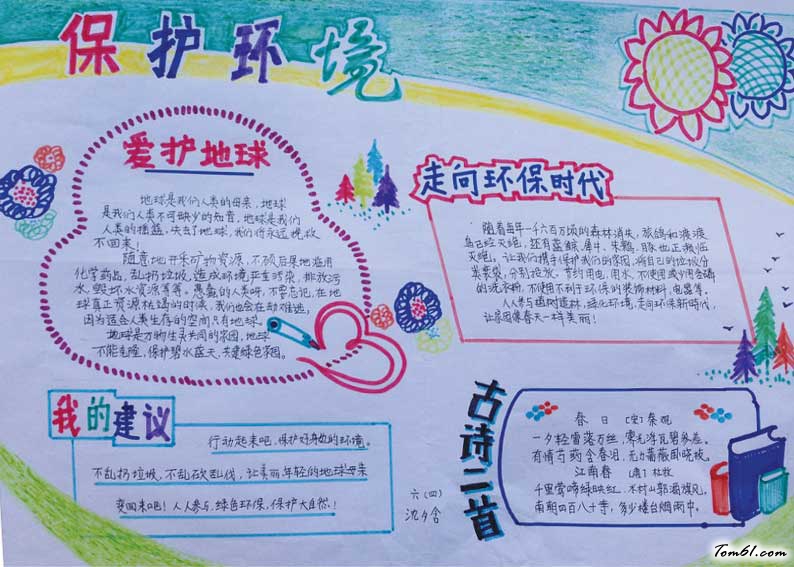 保护环境
爱护地球
地球是我们人类的母亲,地球
是我们人类不可缺少的知音,地球是我们
人类的摇篮,失去了地球,我们将永远挽救
不回来!
随意地开采矿物资源,不顾后果地滥用
化学药品,乱扔垃圾,造成环境严重污染,排放污
水,毁坏水资源等等。愚蠢的人类呀,不要忘记,在地
球真正资源枯竭的时候,我们也会在劫难逃,
因为适合人类生存的空间只有地球。
地球是万物生灵共同的家园,地球
不能危险,保护碧水蓝天,共建绿色家园。
走向环保时代
随着每年一千六百万顷的森林消失,旅鸽和渡渡
鸟已经灭绝,还有蓝鲸、犀牛、朱鹮、豚也正濒临
灭绝。让我们携手保护我们的家园,将自己的垃圾分
类装袋,分别投放,节约用电、用水,不使用或少用含磷
的洗衣粉,不使用不利于环境的装饰材料,电器等。
人人参与植树造林,绿化环境,走向环保新时代,
让家园像春天一样美丽!
我的建议
行动起来吧,保护好身边的环境。
不乱扔垃圾,不乱砍乱伐,让美丽年轻的地球母亲
变回来吧!人人参与,绿色环保,保护大自然!
六(四)
沈夕含
古诗二首
春日 [宋]秦观
一夕轻雷落万丝,霁光浮瓦碧参差。
有情芍药含春泪,无力蔷薇卧晓枝。
江南春 [唐]杜牧
千里莺啼绿映红,水村山郭酒旗风。
南朝四百八十寺,多少楼台烟雨中。
Tom61.com